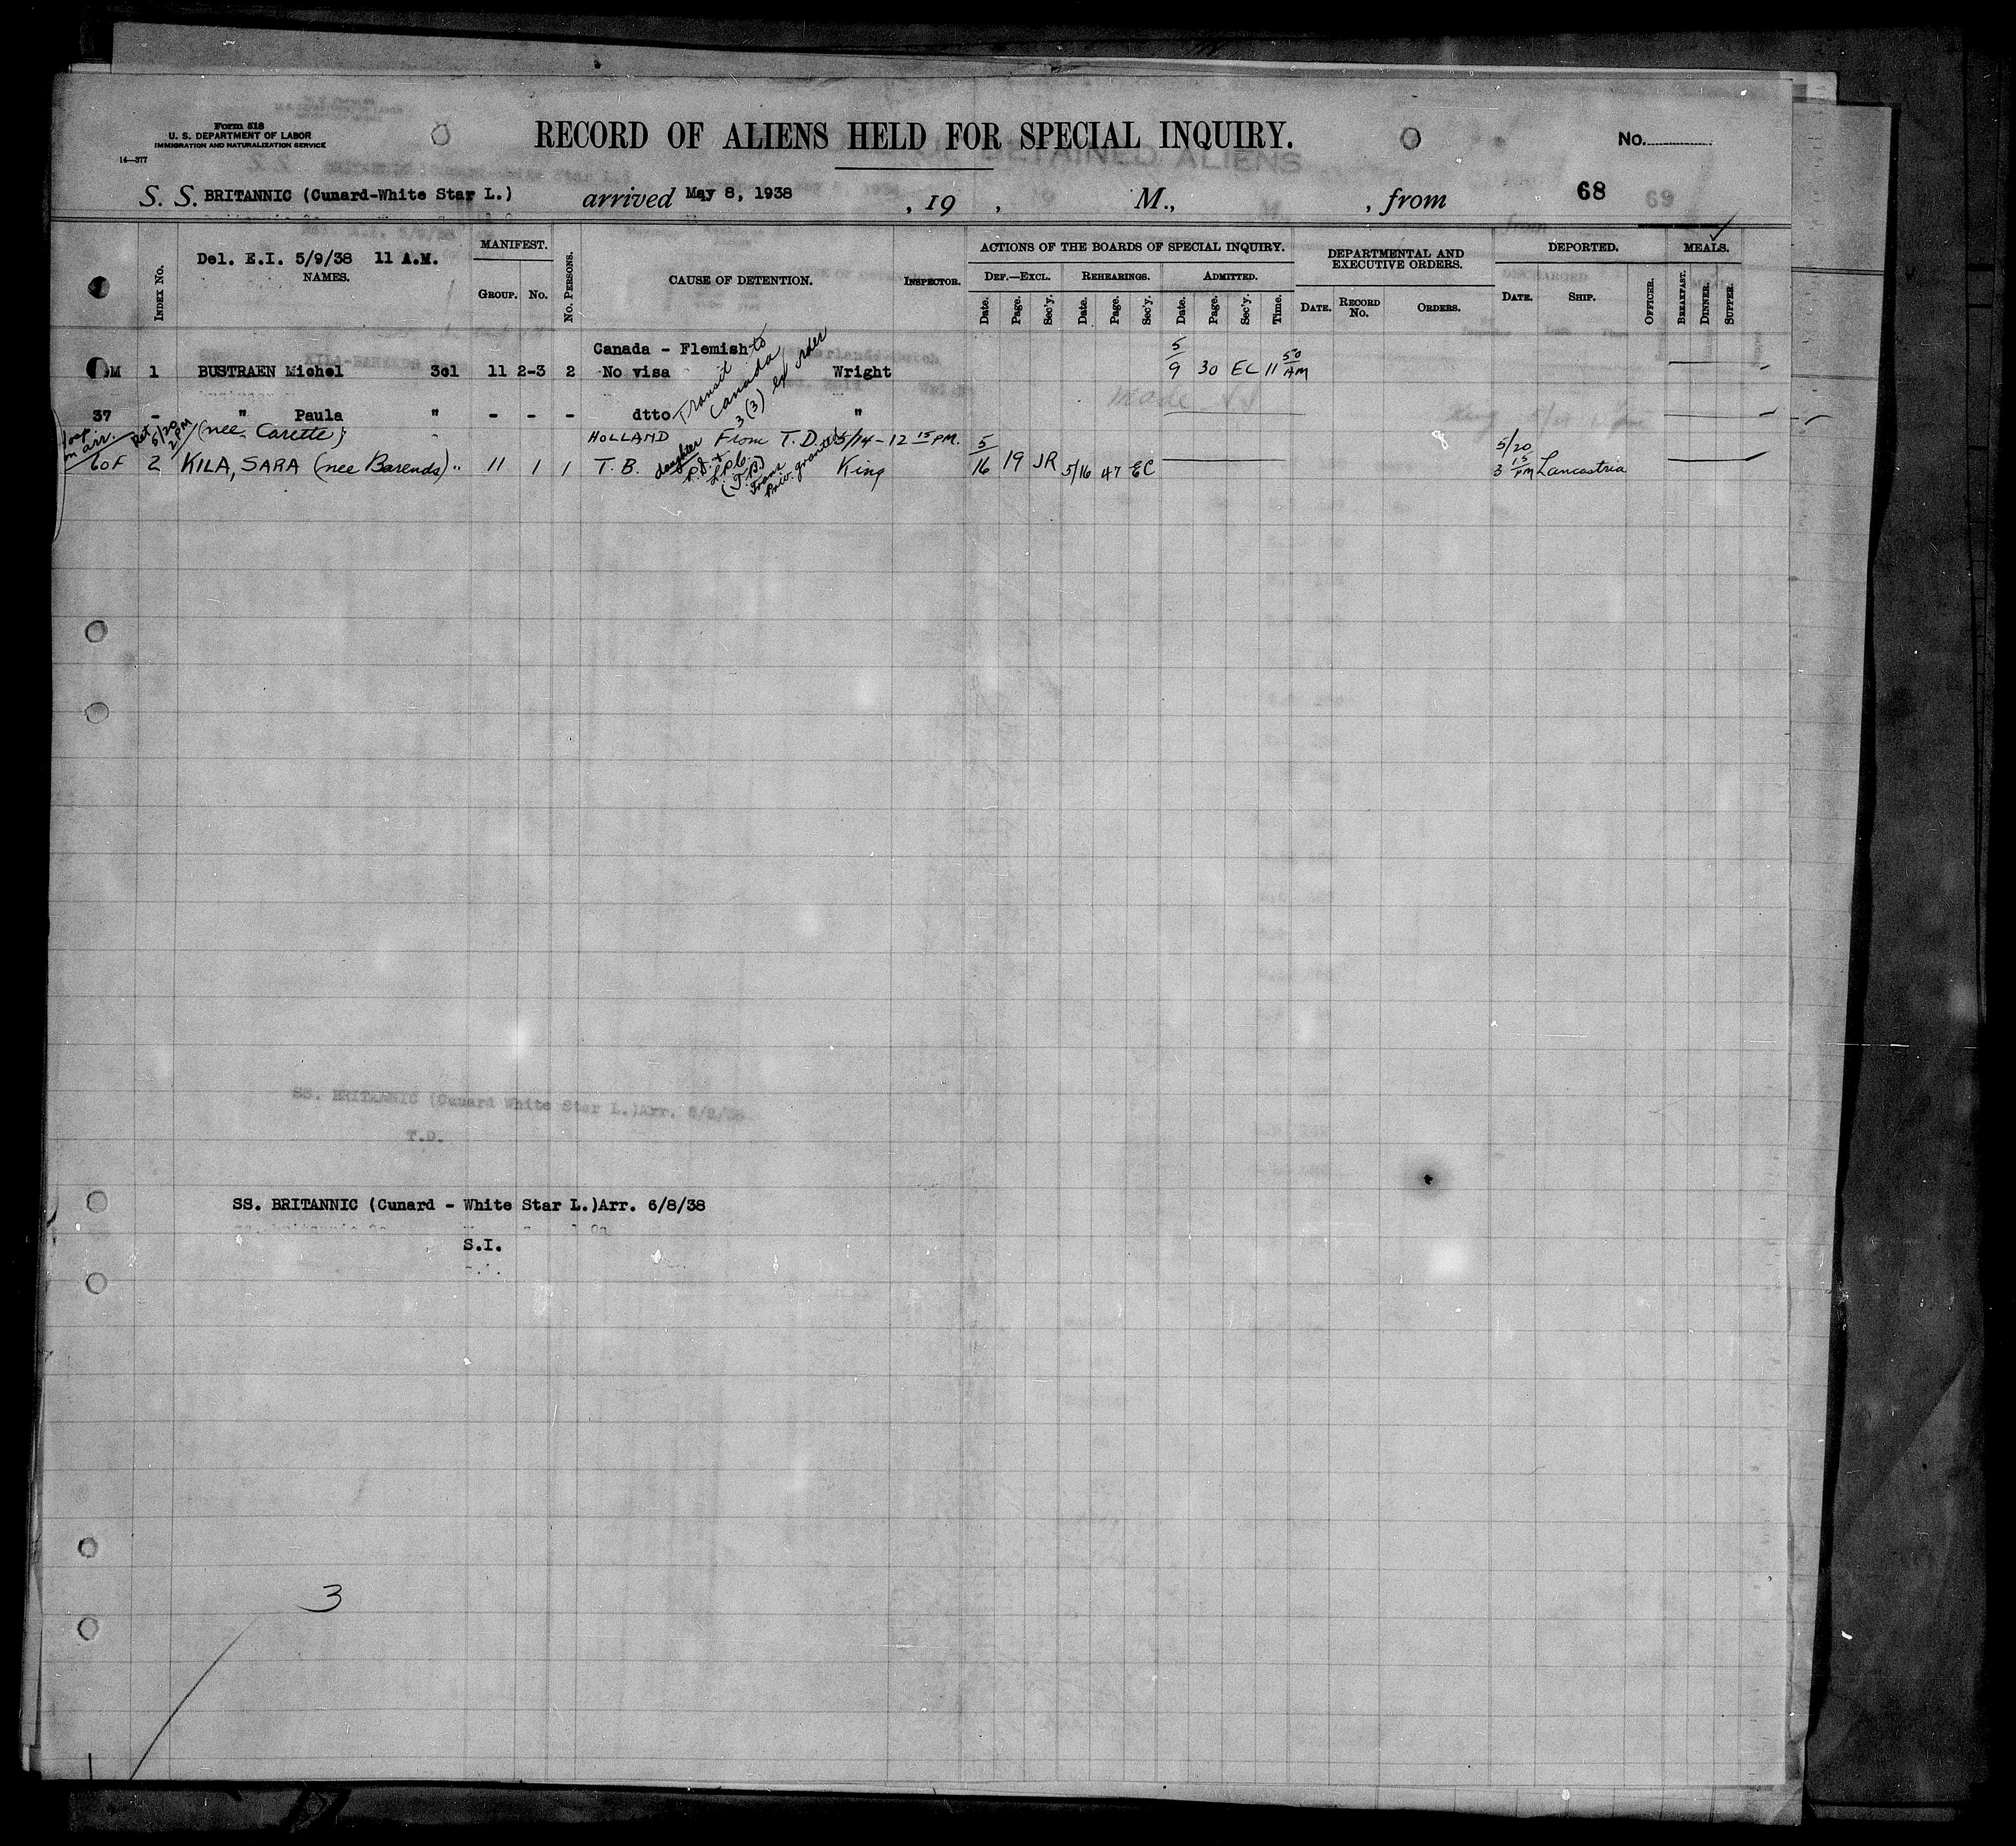 Form 518
U. S. DEPARTMENT OF LABOR
IMMIGRATION AND NATURALIZATION SERVICE
14—377
RECORD OF ALIENS HELD FOR SPECIAL INQUIRY.
No.
S. S. BRITANNIC (Cunard-White Star L.) arrived May 8, 1938 , 19 , M., , from 68
69
Del. E.I. 5/9/38 11 A.M.
INDEX No. NAMES. MANIFEST. GROUP. No. No. PERSONS. CAUSE OF DETENTION. INSPECTOR.
ACTIONS OF THE BOARDS OF SPECIAL INQUIRY.
DEF.—EXCL. REHEARINGS. ADMITTED.
Date. Page. Sec'y. Date. Page. Sec'y. Date. Page. Sec'y. Time.
DEPARTMENTAL AND EXECUTIVE ORDERS.
DATE. RECORD No. ORDERS.
DEPORTED.
DATE. SHIP. OFFICER.
MEALS.
BREAKFAST. DINNER. SUPPER.
Canada - Flemish
M 1 BUSTRAEN Michel 3cl 11 2-3 2 No visa Wright 5/9 30 EC 11 50 AM
Transit to
Canada
3(3) ex order
37 - " Paula " - - - dtto "
(nee Carette)
on arr.
Ret 5/20 2 PM
HOLLAND From T.D. 5/14 - 12 15 PM.
60F 2 KILA, SARA (nee Barends) " 11 1 1 T.B. King 5/16 19 JR 5/16 47 EC 5/20 3 15 PM Lancastria
daughter
P.D. +
L.P.C.
(T.B.)
Priv. granted
SS. BRITANNIC (Cunard White Star L.)Arr. 6/8/38
T.D.
SS. BRITANNIC (Cunard - White Star L.)Arr. 6/8/38
S.I.
3